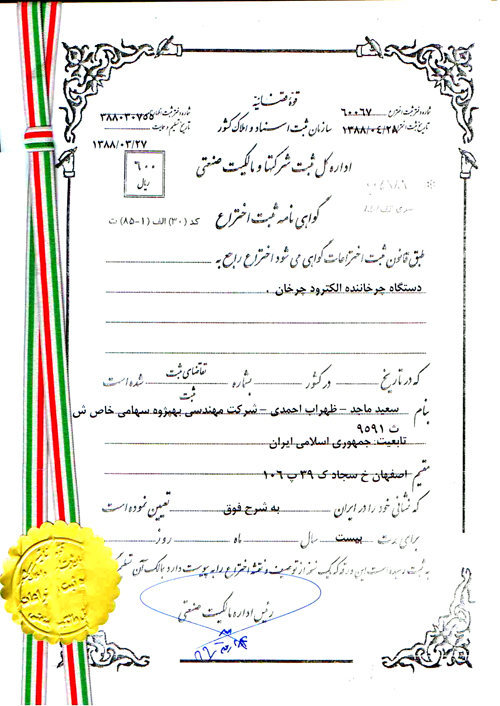 قوهٔ قضائیه
شماره دفتر ثبت اختراع ۶۰۰۶۷
تاریخ ثبت ۱۳۸۸/۰۴/۲۸
سازمان ثبت اسناد و املاک کشور
۳۸۸۰۳۰۷۵۵
۱۳۸۸/۰۳/۲۷
اداره کل ثبت شرکتها و مالکیت صنعتی
۶۰۰
ریال
گواهی نامه ثبت اختراع
کد (۳۰) الف (۱-۸۵) ت
طبق قانون ثبت اختراعات گواهی می شود اختراع راجع به
دستگاه چرخاننده الکترود چرخان .
که در تاریخ در کشور بشماره تقاضای ثبت شده است
ثبت
بنام سعید ماجد - ظهراب احمدی - شرکت مهندسی بهپژوه سهامی خاص ش
ث ۹۵۹۱
تابعیت: جمهوری اسلامی ایران
مقیم اصفهان خ سجاد ک ۳۹ پ ۱۰۶
که نشانی خود را در ایران به شرح فوق تعیین نموده است
برای مدت بیست سال ماه روز
به ثبت رسیده است این ورقه که یک نسخه از توصیف و نقشه اختراع را به پیوست دارد بمالک آن
رئیس اداره مالکیت صنعتی